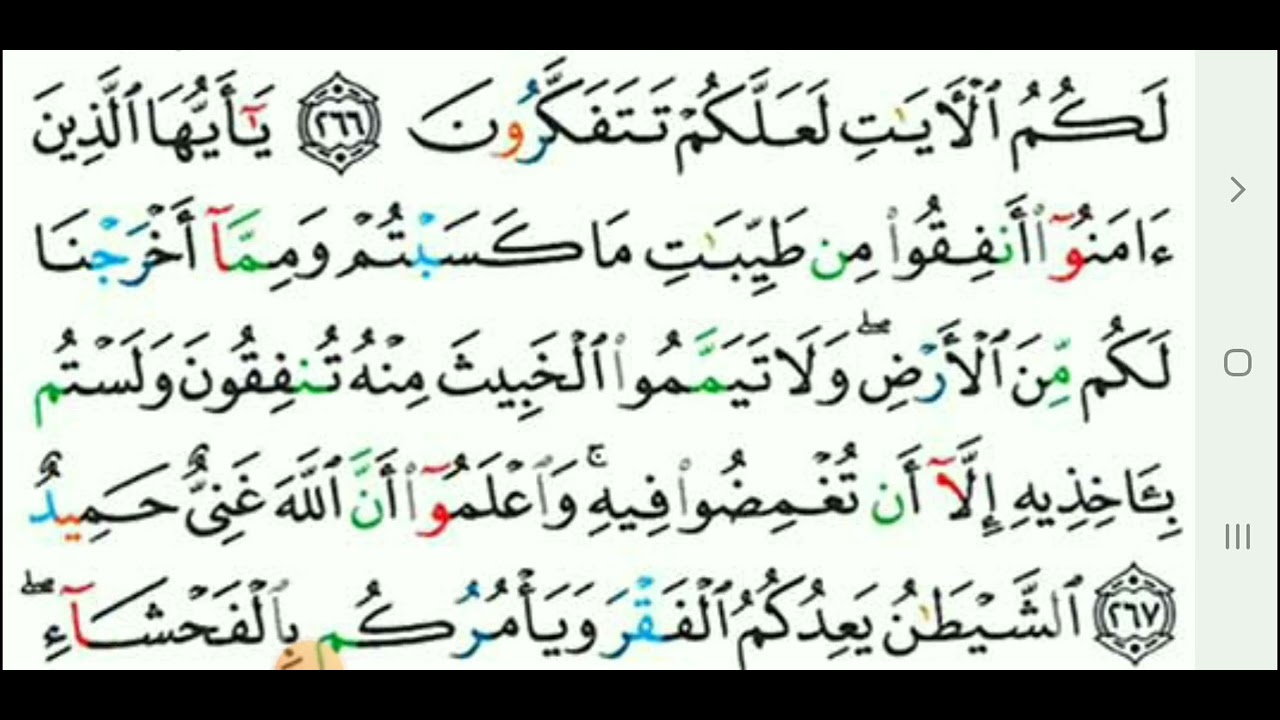 لَكُمُ ٱلْأَيَـٰتِ لَعَلَّكُمْ تَتَفَكَّرُونَ ٢٦٦ يَـٰٓأَيُّهَا ٱلَّذِينَ
ءَامَنُوٓا۟ أَنفِقُوا۟ مِن طَيِّبَـٰتِ مَا كَسَبْتُمْ وَمِمَّآ أَخْرَجْنَا
لَكُم مِّنَ ٱلْأَرْضِ ۖ وَلَا تَيَمَّمُوا۟ ٱلْخَبِيثَ مِنْهُ تُنفِقُونَ وَلَسْتُم
بِـَٔاخِذِيهِ إِلَّآ أَن تُغْمِضُوا۟ فِيهِ ۚ وَٱعْلَمُوٓا۟ أَنَّ ٱللَّهَ غَنِىٌّ حَمِيدٌ
٢٦٧ ٱلشَّيْطَـٰنُ يَعِدُكُمُ ٱلْفَقْرَ وَيَأْمُرُكُم بِٱلْفَحْشَآءِ ۖ